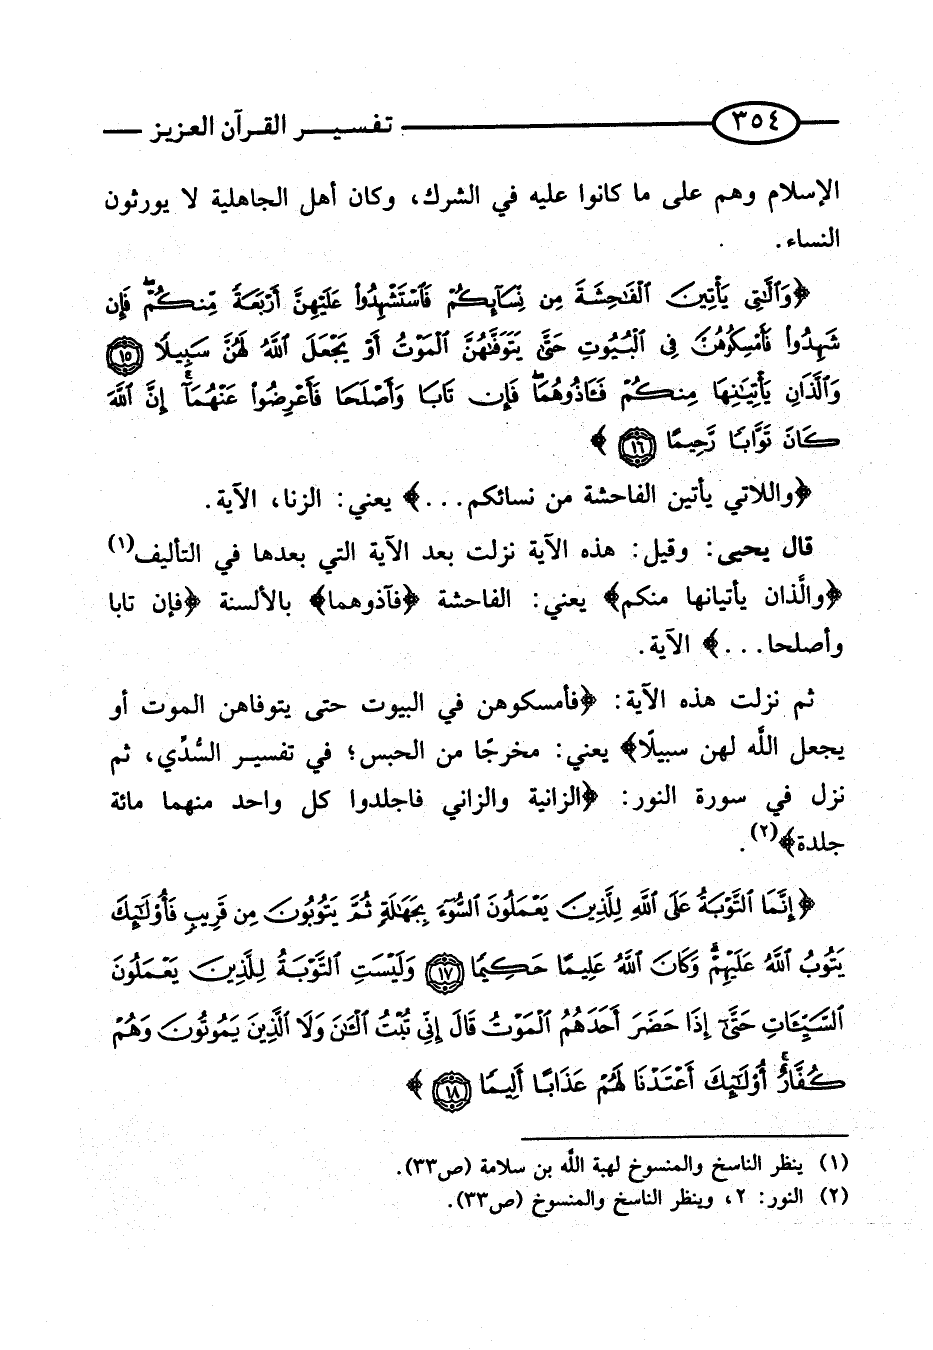 ٣٥٤ تفسير القرآن العزيز
الإسلام وهم على ما كانوا عليه في الشرك، وكان أهل الجاهلية لا يورثون
النساء.
﴿وَالَّٰتِي يَأْتِينَ الْفَاحِشَةَ مِن نِّسَائِكُمْ فَاسْتَشْهِدُوا عَلَيْهِنَّ أَرْبَعَةً مِّنكُمْ فَإِن
شَهِدُوا فَأَمْسِكُوهُنَّ فِي الْبُيُوتِ حَتَّىٰ يَتَوَفَّاهُنَّ الْمَوْتُ أَوْ يَجْعَلَ اللَّهُ لَهُنَّ سَبِيلًا ١٥
وَالَّذَانِ يَأْتِيَانِهَا مِنكُمْ فَآذُوهُمَا فَإِن تَابَا وَأَصْلَحَا فَأَعْرِضُوا عَنْهُمَا إِنَّ اللَّهَ
كَانَ تَوَّابًا رَّحِيمًا ١٦﴾
﴿واللاتي يأتين الفاحشة من نسائكم...﴾ يعني: الزنا، الآية.
قال يحيى: وقيل: هذه الآية نزلت بعد الآية التي بعدها في التأليف(١)
﴿والَّذان يأتيانها منكم﴾ يعني: الفاحشة ﴿فآذوهما﴾ بالألسنة ﴿فإن تابا
وأصلحا...﴾ الآية.
ثم نزلت هذه الآية: ﴿فأمسكوهن في البيوت حتى يتوفاهن الموت أو
يجعل اللَّه لهن سبيلًا﴾ يعني: مخرجًا من الحبس؛ في تفسير السُّدِّي، ثم
نزل في سورة النور: ﴿الزانية والزاني فاجلدوا كل واحد منهما مائة
جلدة﴾(٢).
﴿إِنَّمَا التَّوْبَةُ عَلَى اللَّهِ لِلَّذِينَ يَعْمَلُونَ السُّوءَ بِجَهَالَةٍ ثُمَّ يَتُوبُونَ مِن قَرِيبٍ فَأُولَٰئِكَ
يَتُوبُ اللَّهُ عَلَيْهِمْ وَكَانَ اللَّهُ عَلِيمًا حَكِيمًا ١٧ وَلَيْسَتِ التَّوْبَةُ لِلَّذِينَ يَعْمَلُونَ
السَّيِّئَاتِ حَتَّىٰ إِذَا حَضَرَ أَحَدَهُمُ الْمَوْتُ قَالَ إِنِّي تُبْتُ الْآنَ وَلَا الَّذِينَ يَمُوتُونَ وَهُمْ
كُفَّارٌ أُولَٰئِكَ أَعْتَدْنَا لَهُمْ عَذَابًا أَلِيمًا ١٨﴾
(١) ينظر الناسخ والمنسوخ لهبة اللَّه بن سلامة (ص٣٣).
(٢) النور: ٢، وينظر الناسخ والمنسوخ (ص٣٣).